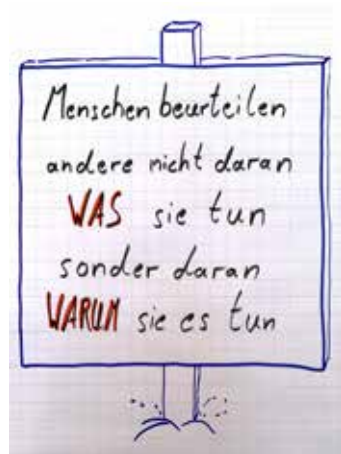 Menschen beurteilen
andere nicht daran
WAS sie tun
sonder daran
WARUM sie es tun